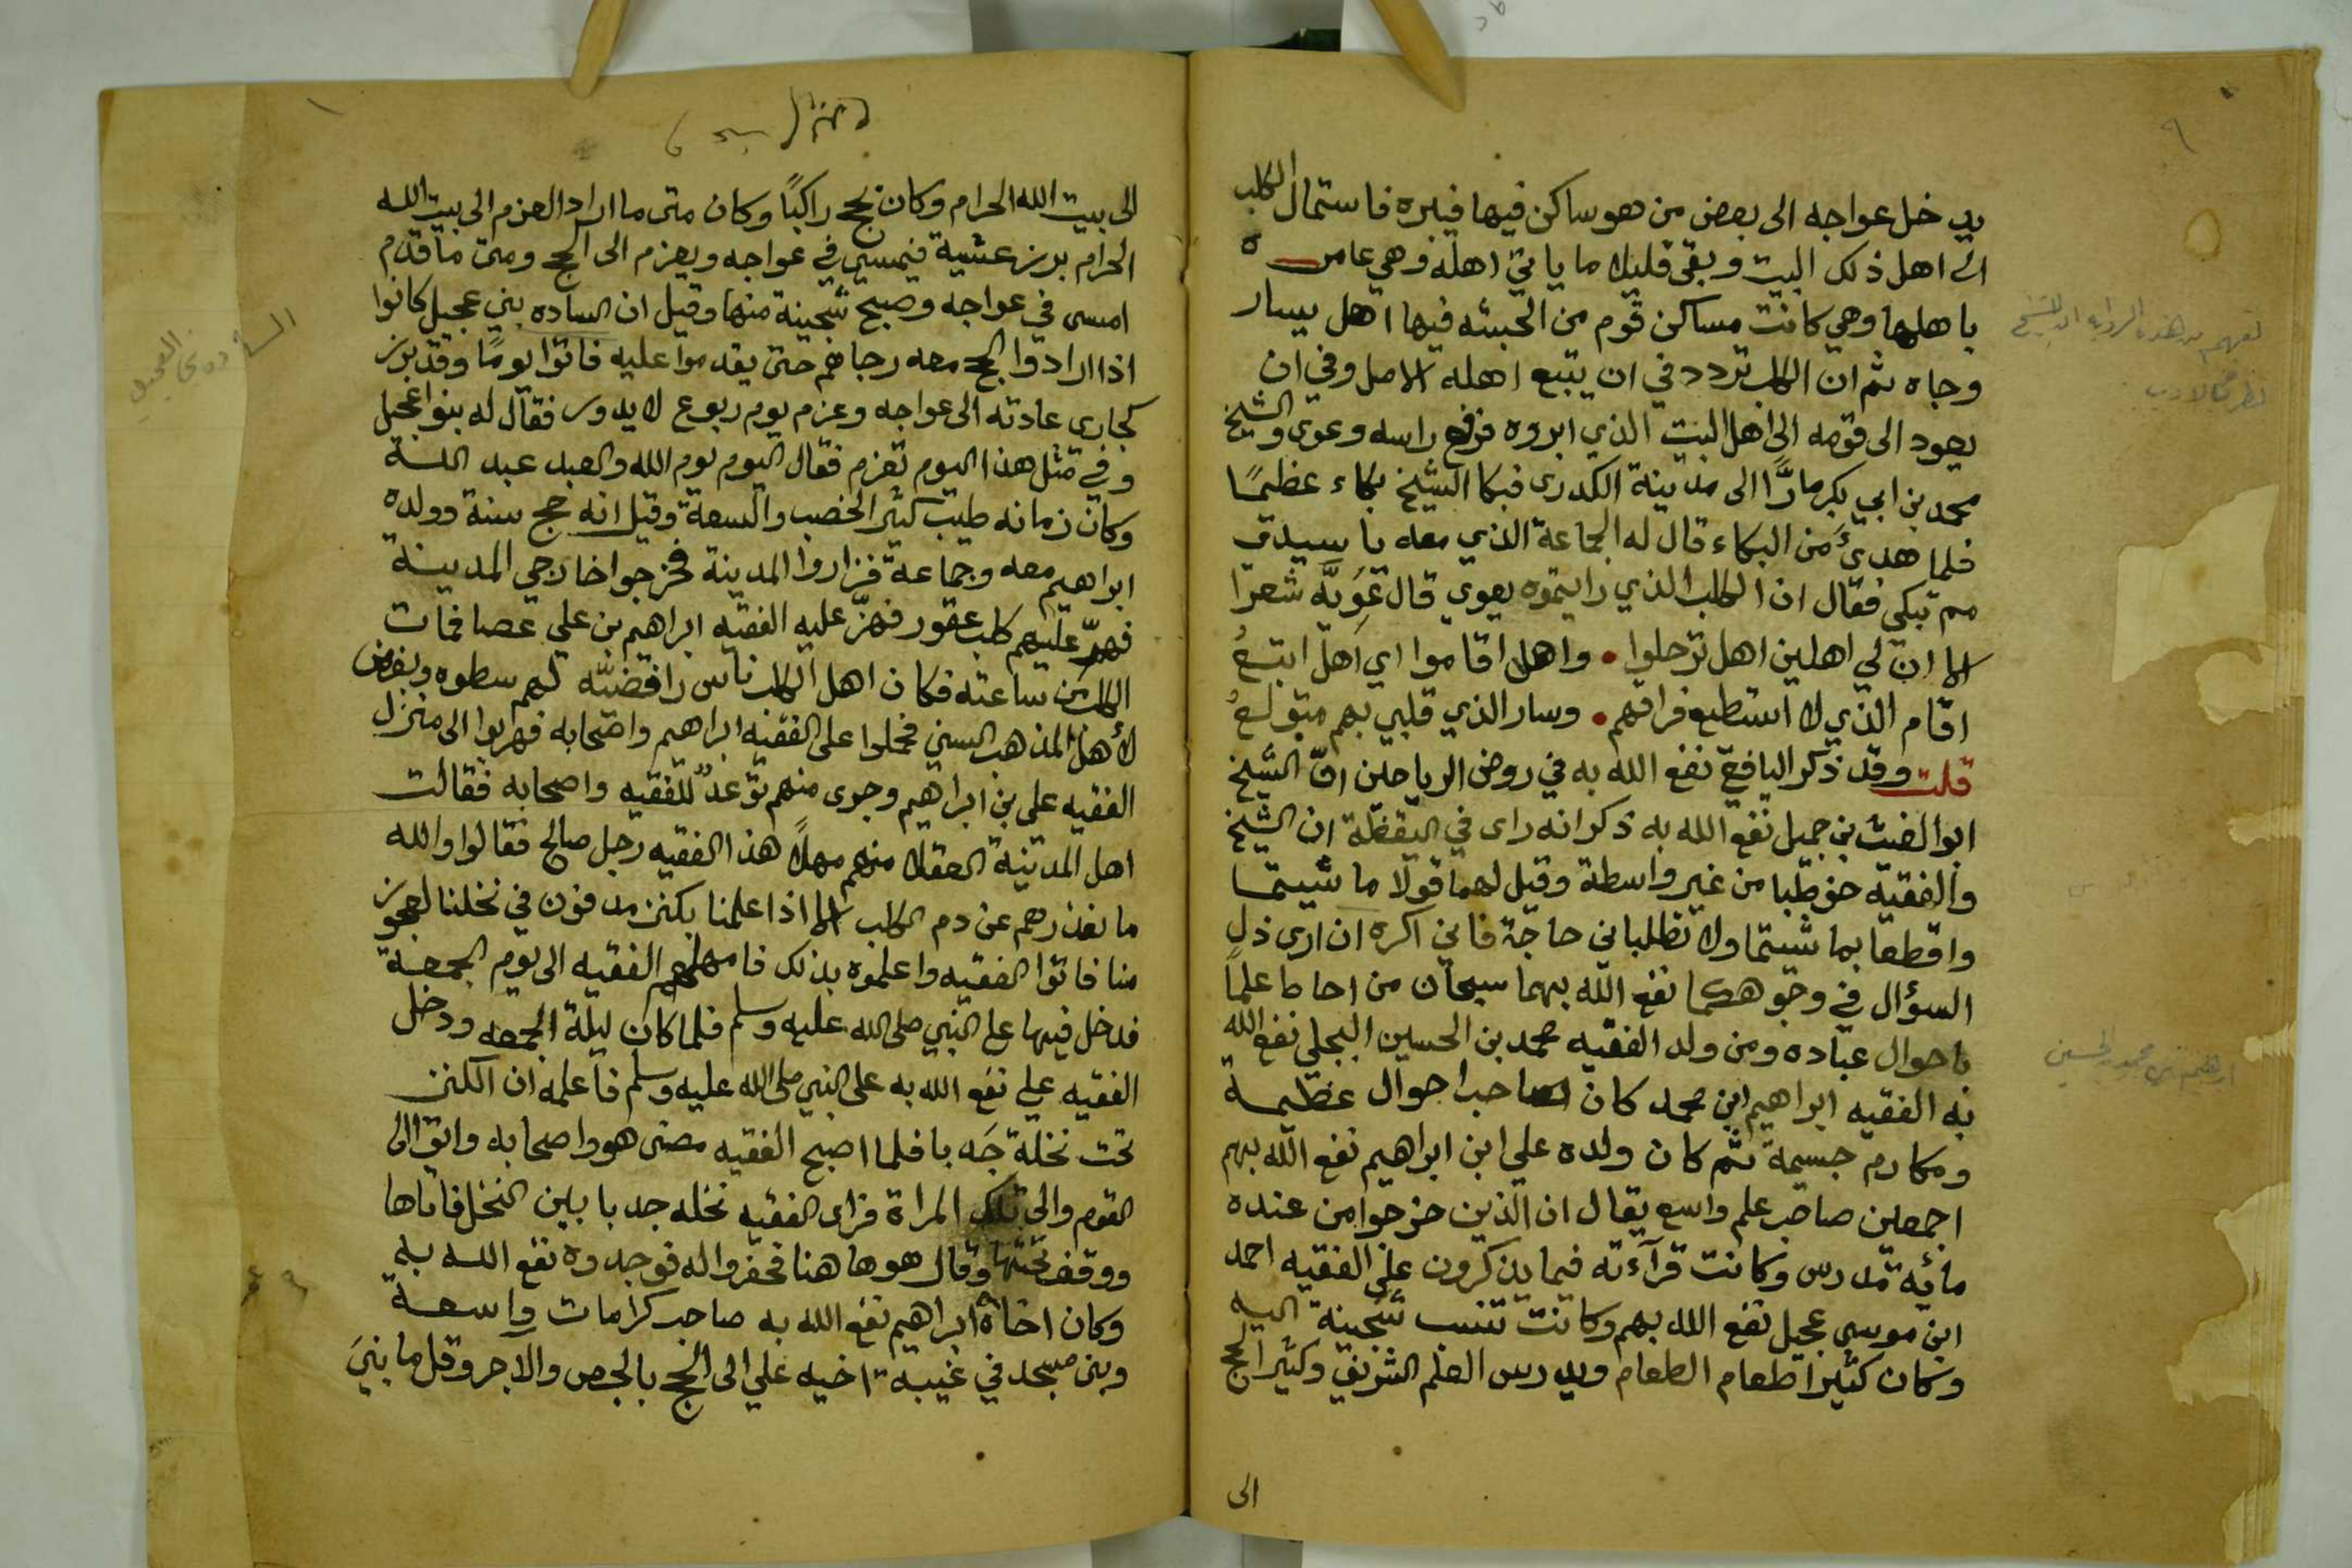 يدخل عواجه الى بعض من هو ساكن فيها فيبره فاستمال الكلب
الى اهل ذلك البيت وبقي قليلا ما ياتي اهله وهي عامرة
باهلها وهي كانت مساكن قوم من الحبشه فيها اهل يسار
وجاه ثم ان الكلب تردد في ان يتبع اهله الاصل وفي ان
يعود الى قومه الى اهل البيت الذي ابروه فرفع راسه وعوى والشيخ
محمد بن ابي بكر مارًّا الى مدينة الكدرى فبكا الشيخ بكاء عظيمًا
فلما هدئ من البكاء قال له الجماعة الذي معه يا سيدي
مم تبكي فقال ان الكلب الذي رايتموه يعوي قال عَوِيَّه شعرا
الا ان لي اهلين اهل ترحلوا • واهل اقاموا اي اهل اتبعُ
اقام الذي لا استطيع فراقهم • وسار الذي قلبي بهم متولعُ
قلت وقد ذكر اليافعي نفع الله به في روض الرياحين انّ الشيخ
ابو الغيث بن جميل نفع الله به ذكر انه راى في اليقظة ان الشيخ
والفقيه خوطبا من غير واسطة وقيل لهما قولا ما شيتما
واقطعا بما شيتما ولا تطلباني حاجة فاني اكره ان ارى ذل
السؤال في وجوهكما نفع الله بهما سبحان من احاط علماً
باحوال عباده ومن ولد الفقيه محمد بن الحسين البجلي نفع الله
به الفقيه ابراهيم ابن محمد كان صاحب احوال عظيمة
ومكارم جسيمة ثم كان ولده علي ابن ابراهيم نفع الله بهم
اجمعين صاحب علم واسع يقال ان الذين خرجوا من عنده
مائة مدرس وكانت قرآءته فيما يذكرون على الفقيه احمد
ابن موسى عجيل نفع الله بهم وكانت تنسب شجينة اليه
وكان كثيرا طعام الطعام ويدرس العلم الشريف وكثيرا لحج
الى
ابرهيم بن محمد بن الحسين
الى بيت الله الحرام وكان يحج راكبًا وكان متى ما اراد العزم الى بيت الله
الحرام برز عشية فيمسي في عواجه ويعزم الى الحج ومتى ما قدم
امسى في عواجه وصبح شجينة منها وقيل ان الساده بني عجيل كانوا
اذا ارادوا الحج معه رجاهم حتى يقدموا عليه فاتوا يومًا وقد برز
كجاري عادته الى عواجه وعزم يوم ربوع لا يدور فقال له بنوا عجيل
وفي مثل هذا اليوم تعزم فقال اليوم يوم الله والعبد عبد الله
وكان زمانه طيب كثير الخصب والسعة وقيل انه حج سنة وولده
ابراهيم معه وجماعة فزاروا المدينة فخرجوا خارجي المدينة
فهرّ عليهم كلب عقور فهزّ عليه الفقيه ابراهيم بن علي عصا فمات
الكلب من ساعته فكان اهل الكلب ناس رافضيّه لهم سطوه وبغض
لأهل المذهب السني فحملوا على الفقيه ابراهيم واصحابه فهربوا الى منزل
الفقيه علي بن ابراهيم وجرى منهم توعدٌ للفقيه واصحابه فقالت
اهل المدينة العقلا منهم مهلاً هذا الفقيه رجل صالح فقالوا والله
ما نعذرهم عن دم الكلب الا اذا علمنا بكنز مدفون في نخلنا لعجوز
منا فاتوا الفقيه واعلموه بذلك فامهلهم الفقيه الى يوم الجمعة
فدخل فيها على النبي صلى الله عليه وسلم فلما كان ليلة الجمعه ودخل
الفقيه علي نفع الله به على النبي صلى الله عليه وسلم فاعلمه ان الكنز
تحت نخلة جدبا فلما اصبح الفقيه مضى هو واصحابه واتو الى
القوم والى تلك المراة فراى الفقيه نخله جدبا بين النخل فاتاها
ووقف تحتها وقال هو ها هنا فحفروا له فوجدوه نفع الله به
وكان اخاه ابراهيم نفع الله به صاحب كرامات واسعة
وبنى مسجد في غيبة اخيه علي الى الحج بالجص والاجر وقل ما بنيَ